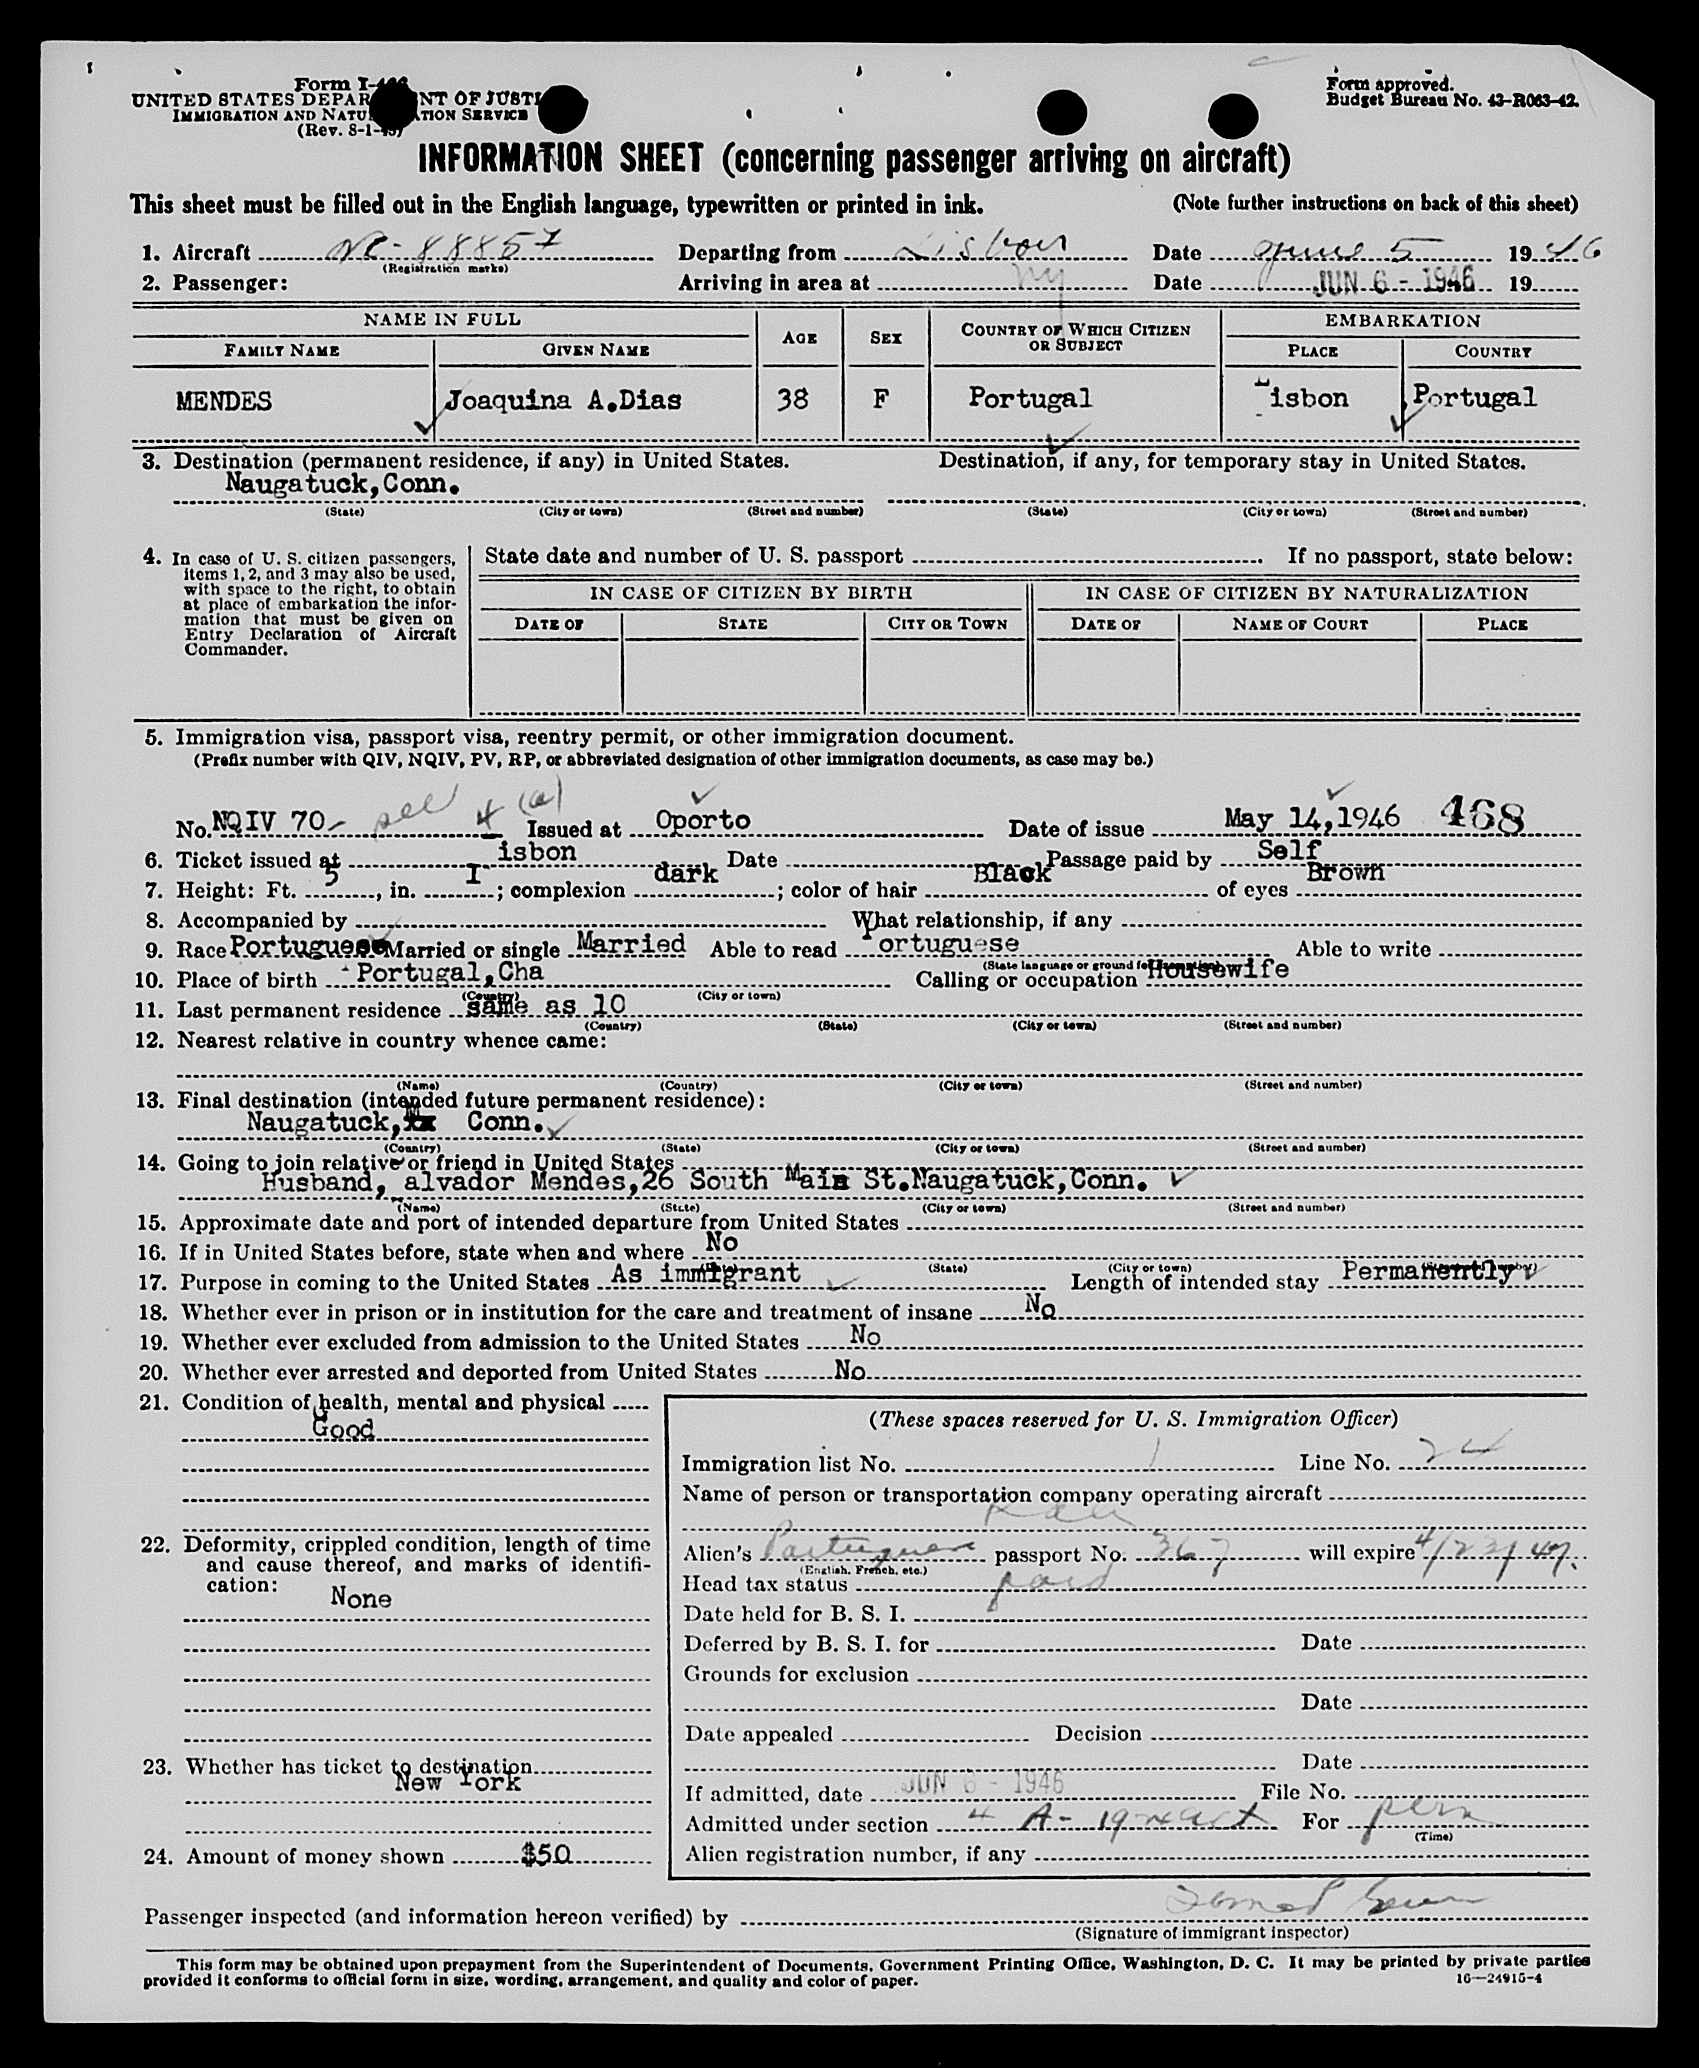 Form I-466
UNITED STATES DEPARTMENT OF JUSTICE
IMMIGRATION AND NATURALIZATION SERVICE
(Rev. 8-1-45)
Form approved.
Budget Bureau No. 43-R063-42.
INFORMATION SHEET (concerning passenger arriving on aircraft)
This sheet must be filled out in the English language, typewritten or printed in ink. (Note further instructions on back of this sheet)
1. Aircraft NC-88857 Departing from Lisbon Date June 5 1946
(Registration marks)
2. Passenger: Arriving in area at NY Date JUN 6 - 1946 19
NAME IN FULL AGE SEX COUNTRY OF WHICH CITIZEN OR SUBJECT EMBARKATION
FAMILY NAME GIVEN NAME PLACE COUNTRY
MENDES Joaquina A.Dias 38 F Portugal Lisbon Portugal
3. Destination (permanent residence, if any) in United States. Destination, if any, for temporary stay in United States.
Naugatuck,Conn.
(State) (City or town) (Street and number) (State) (City or town) (Street and number)
4. In case of U. S. citizen passengers, items 1, 2, and 3 may also be used, with space to the right, to obtain at place of embarkation the information that must be given on Entry Declaration of Aircraft Commander.
State date and number of U. S. passport If no passport, state below:
IN CASE OF CITIZEN BY BIRTH IN CASE OF CITIZEN BY NATURALIZATION
DATE OF STATE CITY OR TOWN DATE OF NAME OF COURT PLACE
5. Immigration visa, passport visa, reentry permit, or other immigration document.
(Prefix number with QIV, NQIV, PV, RP, or abbreviated designation of other immigration documents, as case may be.)
No. NQIV 70- sec 4 (a) Issued at Oporto Date of issue May 14,1946 468
6. Ticket issued at isbon Date Passage paid by Self
7. Height: Ft. 5, in. I; complexion dark; color of hair Black of eyes Brown
8. Accompanied by What relationship, if any
9. Race Portuguese Married or single Married Able to read Portuguese Able to write
(State language or ground for exemption)
10. Place of birth Portugal,Cha Calling or occupation Housewife
(Country) (City or town)
11. Last permanent residence same as 10
(Country) (State) (City or town) (Street and number)
12. Nearest relative in country whence came:
(Name) (Country) (City or town) (Street and number)
13. Final destination (intended future permanent residence):
Naugatuck, Conn.
(Country) (State) (City or town) (Street and number)
14. Going to join relative or friend in United States
Husband, alvador Mendes,26 South Main St.Naugatuck,Conn.
(Name) (State) (City or town) (Street and number)
15. Approximate date and port of intended departure from United States
16. If in United States before, state when and where No
(State) (City or town) (Street and number)
17. Purpose in coming to the United States As immigrant Length of intended stay Permanently
18. Whether ever in prison or in institution for the care and treatment of insane No
19. Whether ever excluded from admission to the United States No
20. Whether ever arrested and deported from United States No
21. Condition of health, mental and physical
Good
22. Deformity, crippled condition, length of time and cause thereof, and marks of identification:
None
23. Whether has ticket to destination
New York
24. Amount of money shown $50
(These spaces reserved for U. S. Immigration Officer)
Immigration list No. 1 Line No. 24
Name of person or transportation company operating aircraft
Alien's Portuguese passport No. 367 will expire 4/23/47.
(English, French, etc.)
Head tax status paid
Date held for B. S. I.
Deferred by B. S. I. for Date
Grounds for exclusion
Date
Date appealed Decision
Date
If admitted, date JUN 6 - 1946 File No.
Admitted under section 4 A- 1924 act For perm
(Time)
Alien registration number, if any
Passenger inspected (and information hereon verified) by
(Signature of immigrant inspector)
This form may be obtained upon prepayment from the Superintendent of Documents, Government Printing Office, Washington, D. C. It may be printed by private parties
provided it conforms to official form in size, wording, arrangement, and quality and color of paper. 16—24915-4